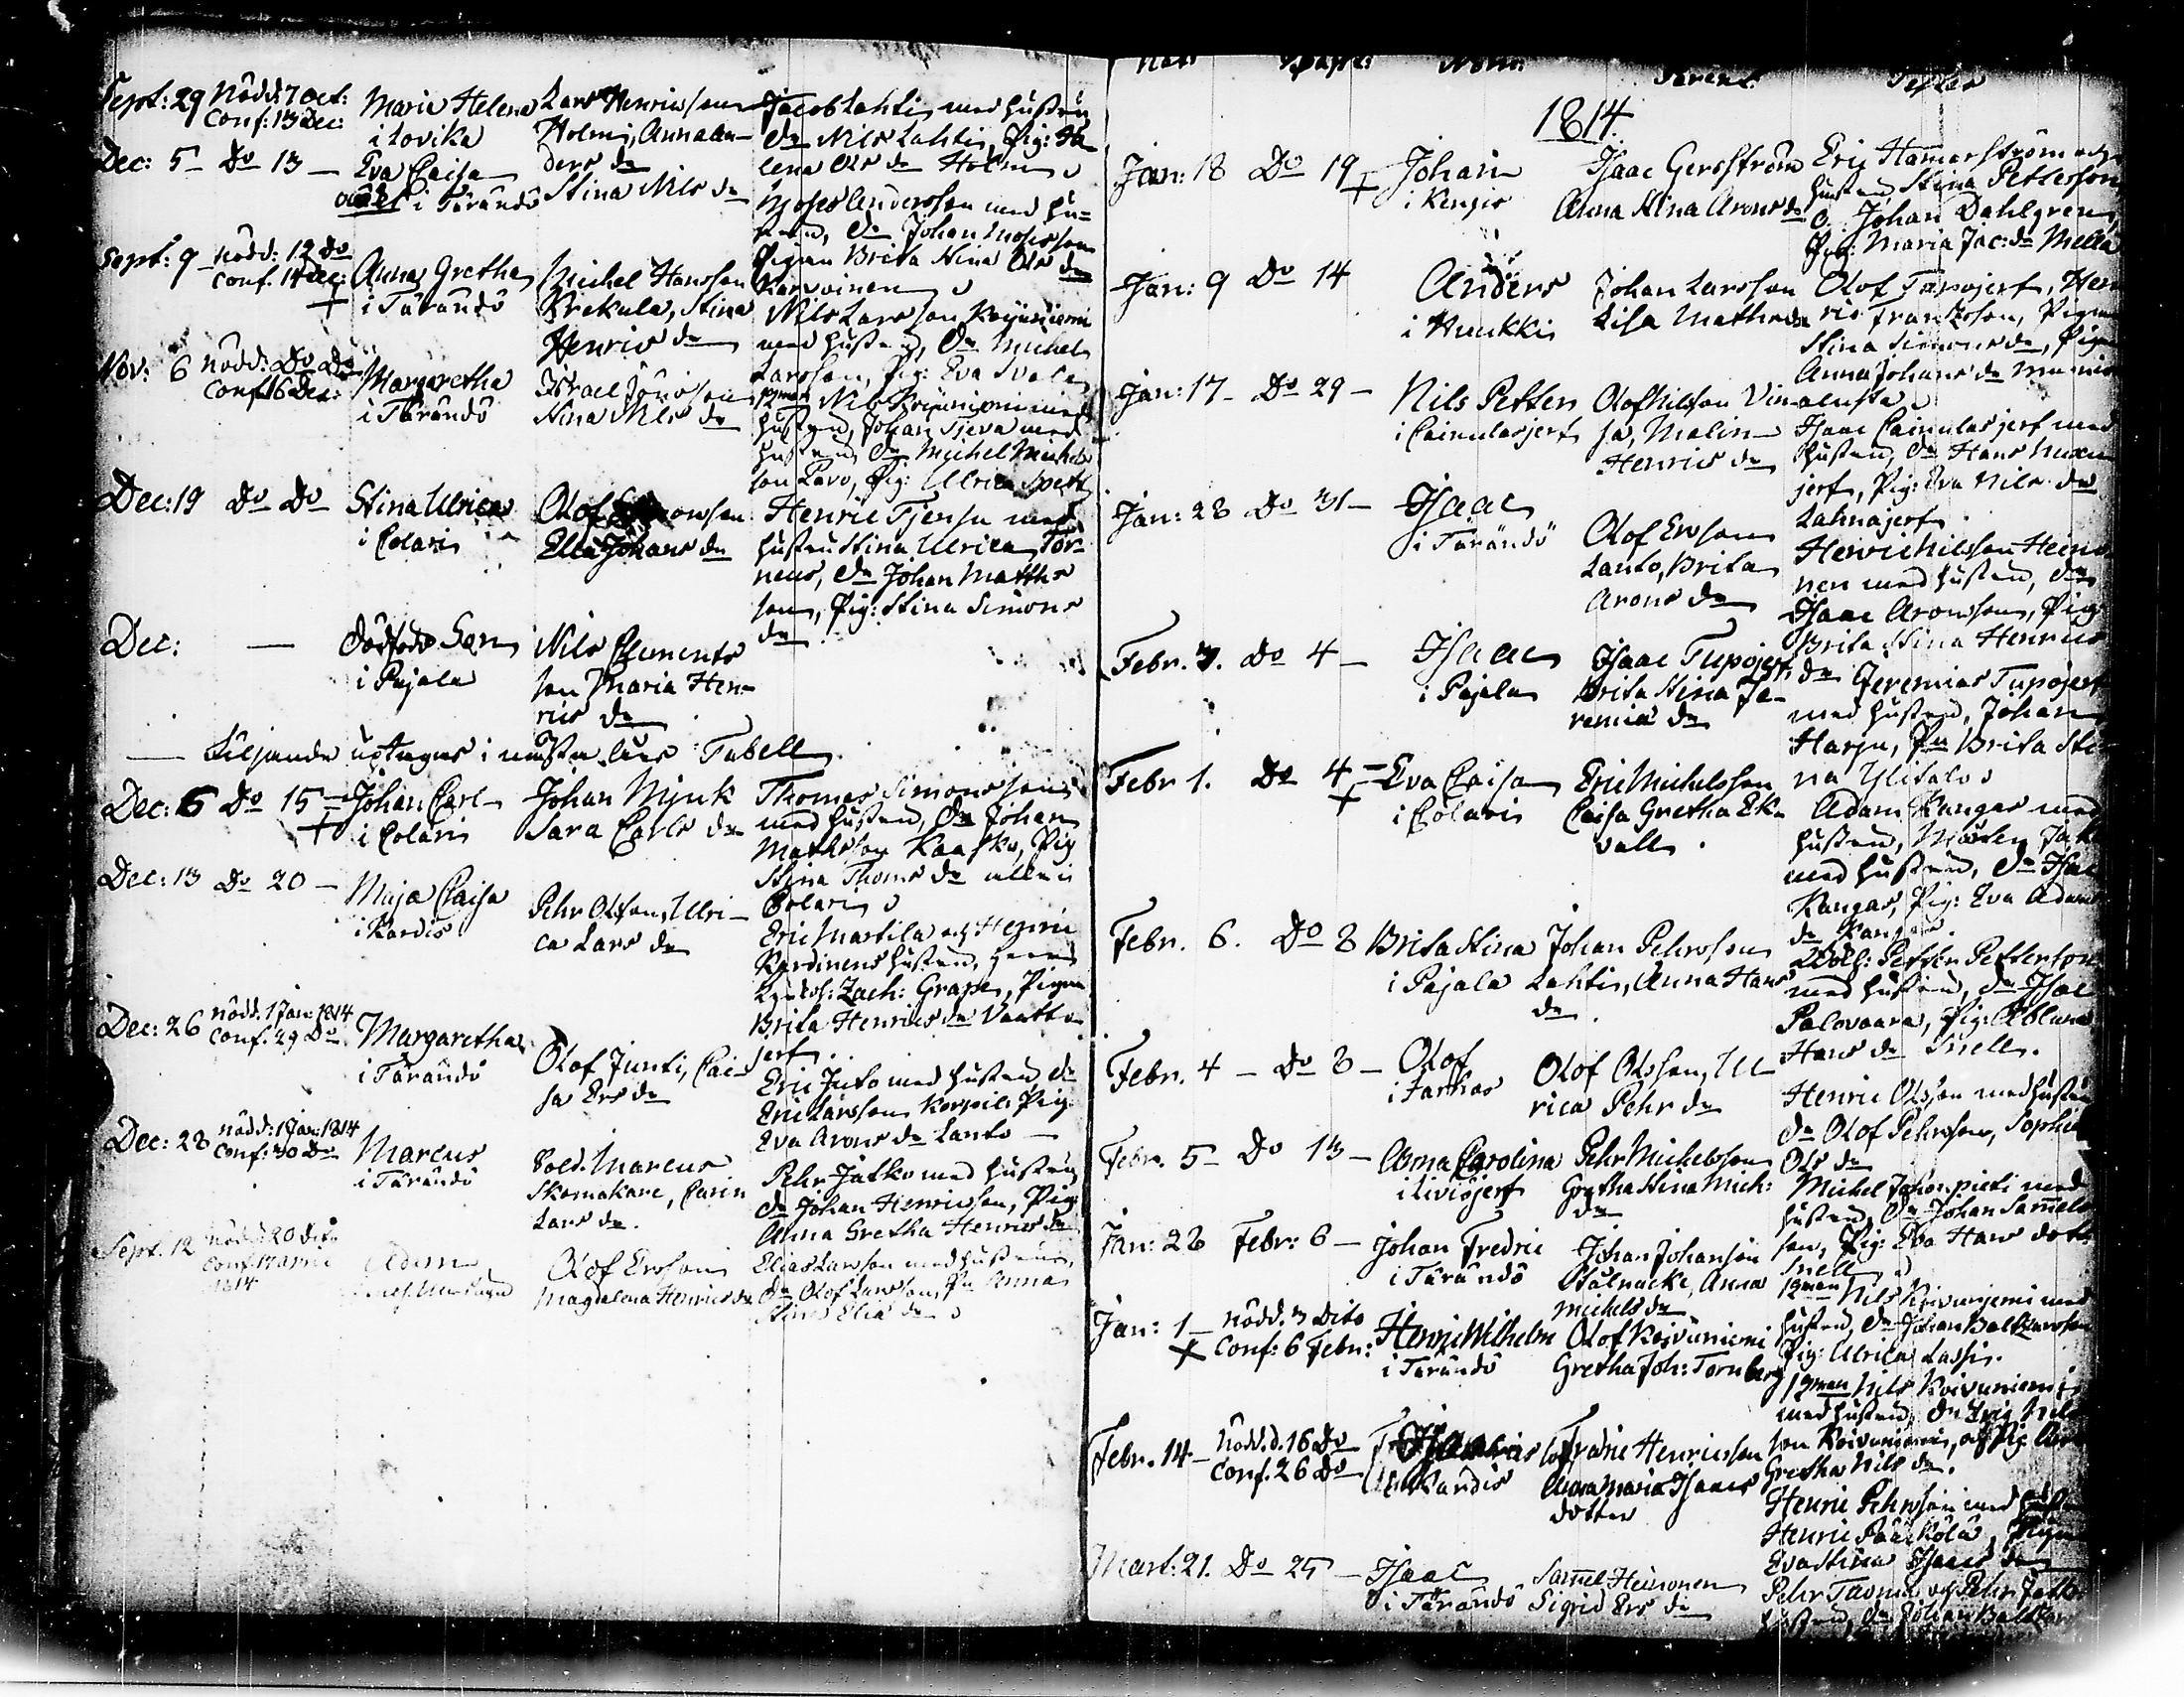 Sept: 29 Nödd: 7 Oct: Conf: 13 Dec:
Maria Helena
i Lovika
Lars Henricsson
Holmi, Anna An-
ders dr
Jacob Lahti med hustru
Dr Nils Lahti, Pig: He
lena Ols dr Holm
Dec: 5 – Do 13 –
Eva Caisa
i Tärändö
Stina Nils dr
Moses Andersson med hu-
Dr Johan Mosesson
Pigan Brita Stina Ols dr
Karvainen
Sept: 9 – nödd: 12 do
Conf. 14 Dec: +
Anna Gretha
i Tärändö
Michel Hansson
Krekula, Stina
Henrics dr
Nils Larsson Koijuniemi
med hustru, Dr Michel
Larsson, Pig: Eva
Nov: 6 nödd: Do Do
Conf. 16 Dec:
Margaretha
i Tärändö
Israel Jönsson
Stina Nils dr
Nils Koijuniemi med
hustru, Johan Sieva med
hustru, Dr Michel Michels
son Pavo, Pig: Ulrica Spett
Dec: 19 Do Do
Stina Ulrica
i Colari
Olof
Ella Johans dr
Henric Tjensu med
hustru Stina Ulrica Tor
neus, Dr Johan Matths
son, Pig: Stina Simons
dr
Dec: –
Dödfödd Son
i Pajala
Nils Clements
son Maria Hen-
rics dr
– följande uptages i nästa års Tabell
Dec: 6 Do 15 – +
Johan Carl
i Colari
Johan Mjuk
Sara Carls dr
Thomas Simonsson
med hustru, Dr Johan
Mathsson Kaasko, Pig
Stina Thoms dr alla i
Colari
Dec: 13 Do 20 –
Maja Caisa
i Kardis
Pehr Olsson, Ulri-
ca Lars dr
Eric Martila och Henric
Kardinens hustru,
Zach: Grape, Pigan
Brita Henrics dr Vaatto
jerf.
Dec: 26 nödd. 1 Jan: 1814
Conf. 29 Do
Margaretha
i Tärändö
Olof Junti, Cai-
sa Ers dr
Eric Juto med hustru, dr
Eric Larsson Korpilo Pig:
Eva Arons dr Lanto –
Dec: 28 nödd: 1 Jan: 1814
Conf: 30 Do
Marcus
i Tärändö
Sold. Marcus
Skomakare, Carin
Lars dr.
Pehr Jatko med hustru
dr Johan Henricsson, Pig
Anna Gretha Henrics dr
Sept. 12 nödd. 20 dito
Conf. 17
1814
Adam
Olof Ersson
Magdalena Henrics dr
Elias Larsson med hustru,
Dr Olof Larsson, Pig Anna
Stina Elia dr
1814.
Jan: 18 Do 19 +
Johan
i Kengis
Isaac Gersström
Anna Stina Arons dr
Eric Hamarström och
hustru, Stina Pettersson
Johan Dahlgren,
Pig: Maria Jac: dr Mella
Jan: 9 Do 14
Anders
i Huukki
Johan Larsson
Lisa Maths dr
Olof Tapojerf, Hen
ric Frantsson, Pigan
Stina Simons dr, Pigan
Anna Johans dr
Jan: 17 – Do 29 –
Nils Petter
i Cainulasjerf
Olof Nilsson Vin
sa, Malin
Henrics dr
Isaac Cainulasjerf med
hustru, Dr Hans
jerf, Pig: Eva Nils dr
Lahnajerf.
Jan: 28 Do 31 –
Isaac
i Tärändö
Olof Ersson
Lanto, Brita
Arons dr
Henric Nilsson Heino
nen med hustru, dr
Isaac Aronsson, Pig:
Brita Stina Henrics
dr
Febr. 3. Do 4 –
Isaac
i Pajala
Isaac Tupojerf,
Brita Stina Je-
remia dr
Jeremias Tupojerf
med hustru, Johan
Harju, Pn Brita Sti
na Ylitalo
Febr 1. Do 4 – +
Eva Caisa
i Colari
Eric Michelsson
Caisa Gretha Ek-
vall.
Adam Kangas med
hustru, Mårten
med hustru, dr Isac
Kangas, Pig: Eva Adams
dr Kangas.
Febr. 6. Do 8
Brita Stina
i Pajala
Johan Pehrsson
Lahti, Anna Hans
dr
Petter Pettersson
med hustru, dr Isac
Palovaara, Pig:
Hans dr Snell.
Febr. 4 – Do 8 –
Olof
i Jarhois
Olof Olsson, Ul
rica Pehr dr
Henric Olsson med hustru
dr Olof Pehrsson, Sophia
Ols dr
Febr. 5 – Do 13 –
Anna Carolina
i Liviöjerf
Pehr Michelsson
Gretha Stina Mich:
dr
Michel Johonpieti med
hustru, Dr Johan Samuels
son, Pig: Eva Hans dotter
Snell
Jan: 28 Febr: 6 –
Johan Fredric
i Tärändö
Johan Johansson
Stålnacke, Anna
Michels dr
Nils Koivuniemi med
hustru, dr Johan Baltzarsson
Pig: Ulrica Lassi.
Jan: 1 – nödd. 3 Dito
+ Conf: 6 Febr:
Henric Wilhelm
i Tärändö
Olof Koivuniemi
Gretha Joh: Tornberg
Nils Koivuniemi
med hustru, dr Eric Nils
son Koivuniemi, och Pig:
Gretha Nils dr.
Febr. 14 – Nödd. d. 16 Do
Conf. 26 Do –
Kardis
Fredric Henricsson
Anna Maria Isaacs
dotter
Henric Pehrsson med hustru
Henric Pääkölä, Pigan
Eva Stina Isaacs dr
Mart: 21. Do 25 –
Isaac
i Tärändö
Samuel Heinonen
Sigrid Ers dr
Pehr Tuoma och Pehr Jatko
hustru, dr Johan Baltzar